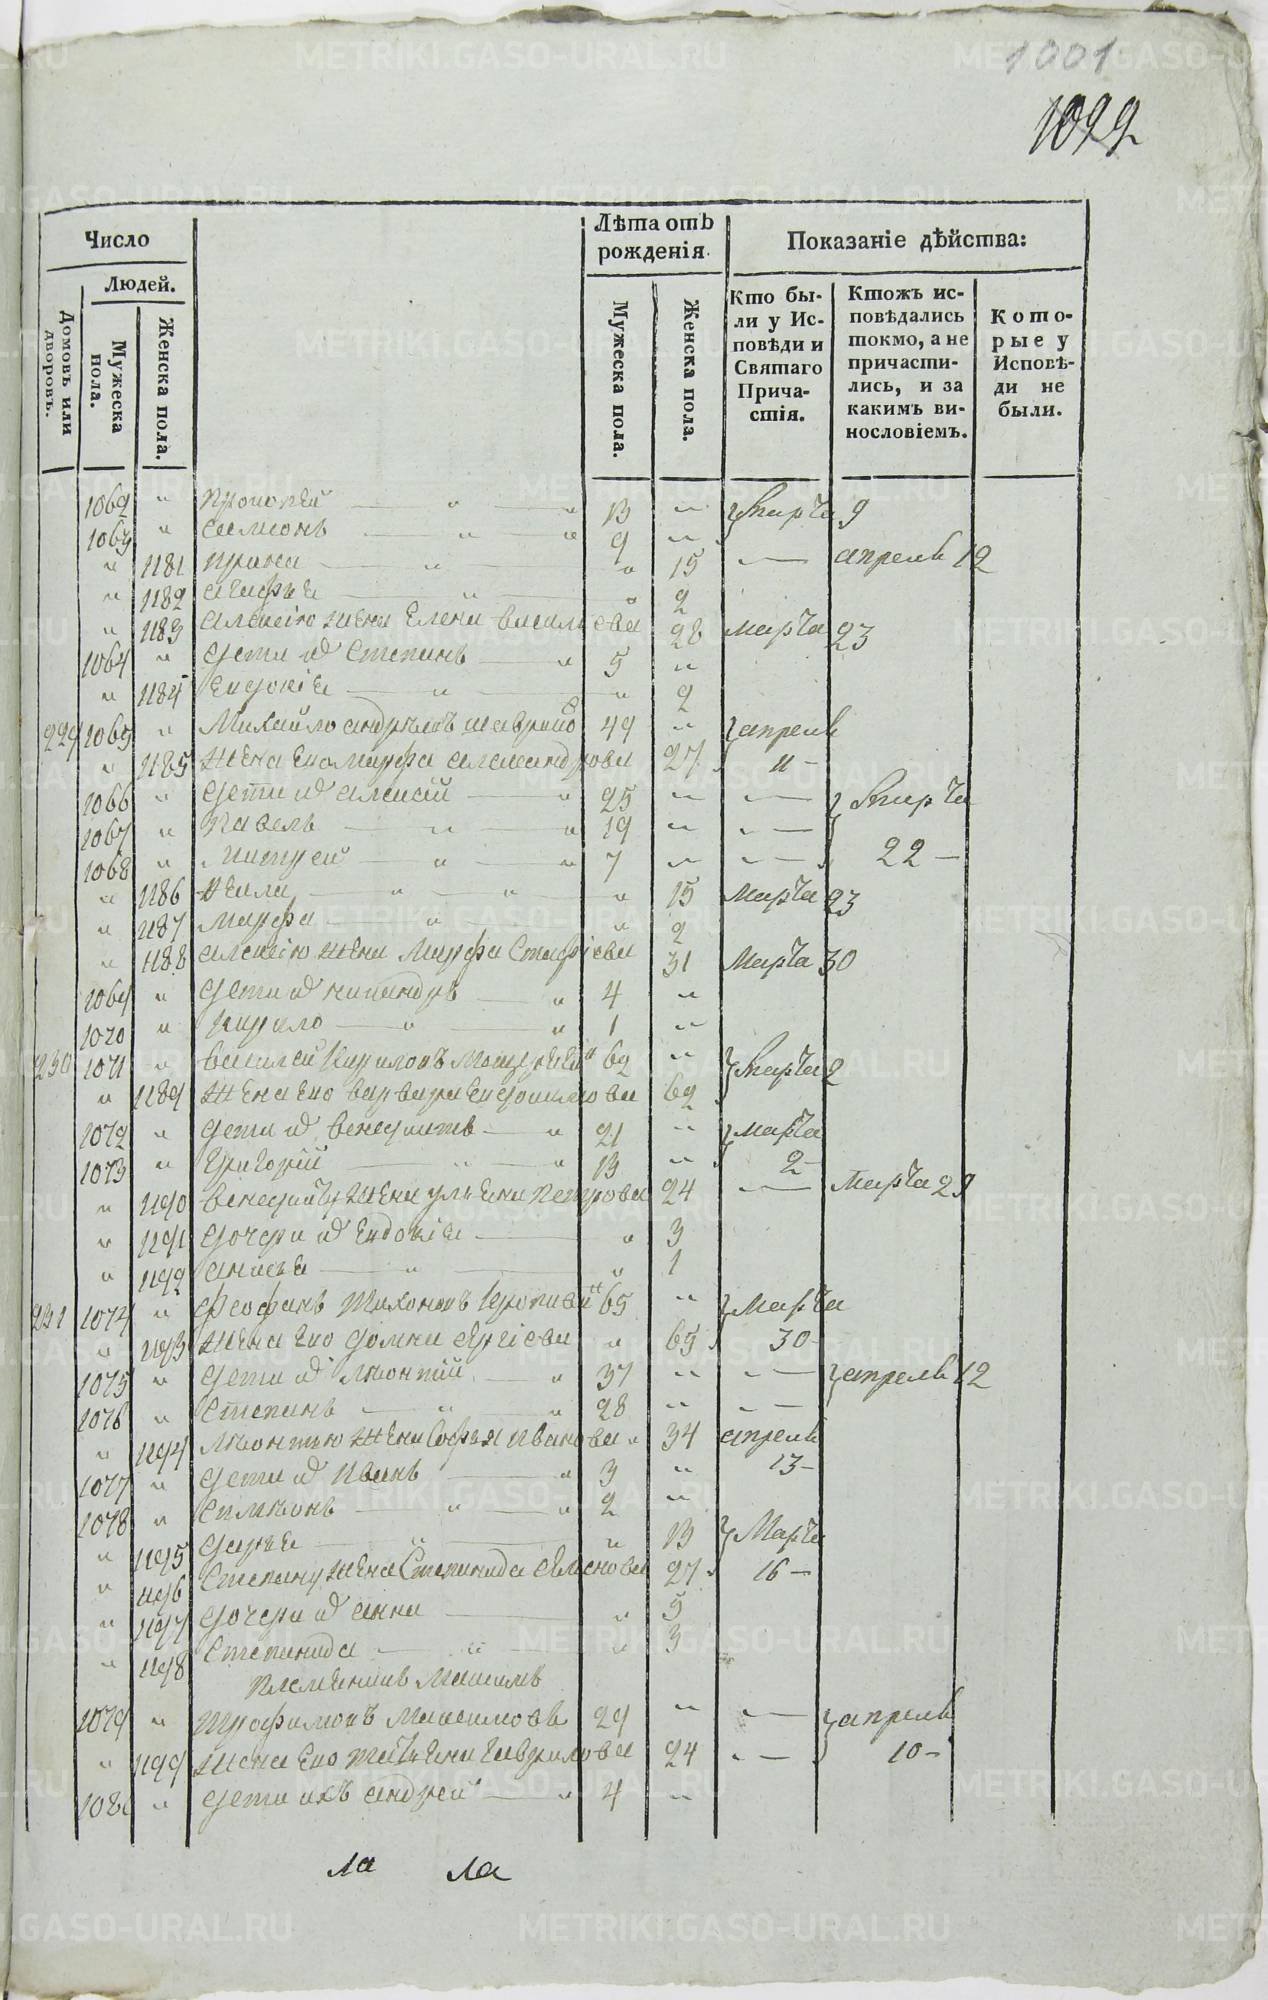 1001
1099
Число
Людей.
Домовъ или дворовъ.
Мужеска пола.
Женска пола.
Лѣта отъ рожденія.
Мужеска пола.
Женска пола.
Показаніе дѣйства:
Кто бы-
ли у Ис-
повѣди и
Святаго
Прича-
стія.
Ктожъ ис-
повѣдались
токмо, а не
причасти-
лись, и за
какимъ ви-
нословіемъ.
Кото-
рые у
Исповѣ-
ди не
были.
1062 " Прокопей " 13 " Марта 9
1063 " Симионъ " 9 "
" 1181 Ирина " 15 — апреля 12
" 1182 Агафья " 2
" 1183 Алексею жена Елена васильева 28 Марта 23
1064 " дети их Степанъ 5 "
" 1184 Евдокія " 2
229 1065 " Михайло андреевъ 49 " апреля
" 1185 жена ево марфа александрова 27 11 —
1066 " дети их алексий 25 " — Марта
1067 " Павелъ 19 " —
1068 " 7 " — 22 —
" 1186 " 15 Марта 23
" 1187 марфа " 2
" 1188 алексею жена Марфа 31 Марта 30
1069 " дети их никандръ 4 "
1070 " Кирило 1 "
230 1071 " василей Кириловъ 62 " Марта 2
" 1189 жена ево варвара 62
1072 " дети их венедиктъ 21 " марта
1073 " Григорій 13 " 2 —
" 1190 жена ульяна петрова 24 — Марта 29
" 1191 дочери их Евдокія " 3
" 1192 анисья " 1
231 1074 " феофанъ Тихоновъ 65 " Марта
" 1193 жена ево домна " 65 30 —
1075 " дети их Леонтій 37 " — апреля 12
1076 " Степанъ 28 " —
" 1194 Леонтью жена Софья Иванова " 34 апреля
1077 " дети их Иванъ 3 " 13 —
1078 " Симеонъ 2 "
" 1195 дарья " 13 Марта
" 1196 Степану жена Степанида 27 16 —
" 1197 дочери их анна " 5
" 1198 Степанида " 3
племянник
1079 " Трофимовъ 29 " — апреля
" 1199 жена ево татьяна гаврилова 24 — 10 —
108 " дети ихъ андрей 4 "
ла ла
METRIKI.GASO-URAL.RU